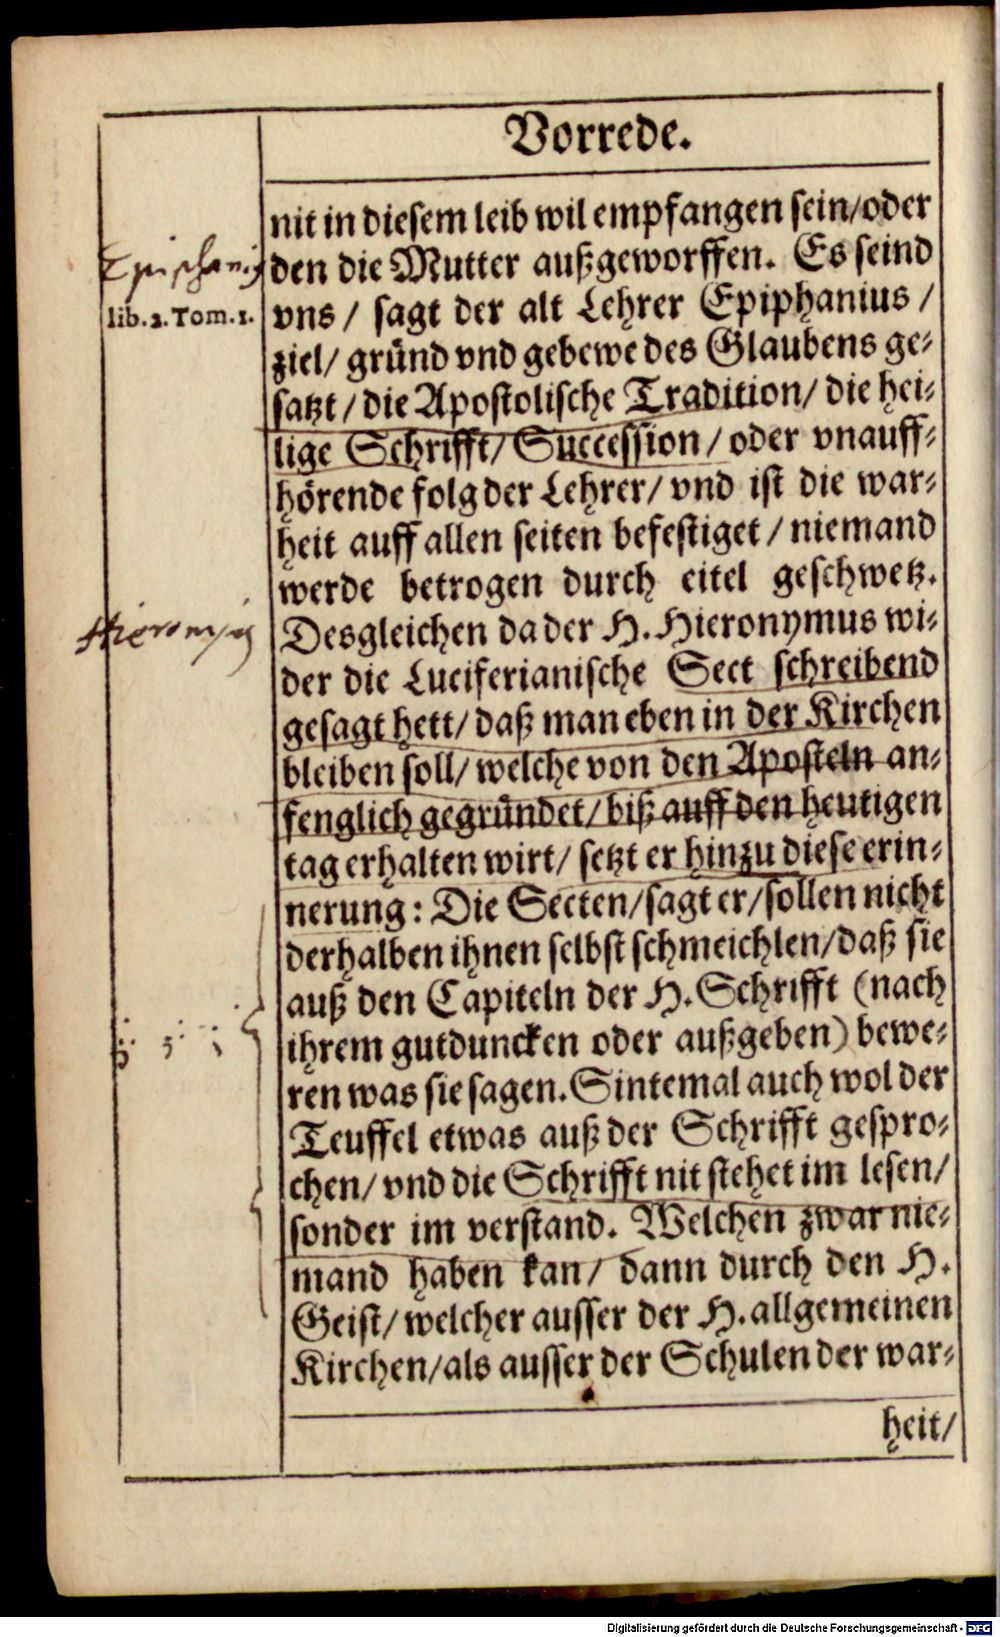 Vorrede.
nit in diesem leib wil empfangen sein/oder
Epischanig
den die Mutter außgeworffen. Es seind
lib. 2. Tom. 1.
vns / sagt der alt Lehrer Epiphanius /
ziel/ gründ vnd gebewe des Glaubens ge-
satzt / die Apostolische Tradition/ die hei-
lige Schrifft/ Succession / oder vnauff-
hörende folg der Lehrer/ vnd ist die war-
heit auff allen seiten befestiget / niemand
werde betrogen durch eitel geschwetz.
Hieronymus
Desgleichen da der H. Hieronymus wi-
der die Luciferianische Sect schreibend
gesagt hett/ daß man eben in der Kirchen
bleiben soll/ welche von den Aposteln an-
fenglich gegründet/ biß auff den heutigen
tag erhalten wirt/ setzt er hinzu diese erin-
nerung: Die Secten/sagt er/sollen nicht
derhalben ihnen selbst schmeichlen/daß sie
auß den Capiteln der H. Schrifft (nach
ihrem gutduncken oder außgeben) bewe-
ren was sie sagen. Sintemal auch wol der
Teuffel etwas auß der Schrifft gespro-
chen/ vnd die Schrifft nit stehet im lesen/
sonder im verstand. Welchen zwar nie-
mand haben kan/ dann durch den H.
Geist/ welcher ausser der H. allgemeinen
Kirchen/als ausser der Schulen der war-
heit/
Digitalisierung gefördert durch die Deutsche Forschungsgemeinschaft - DFG